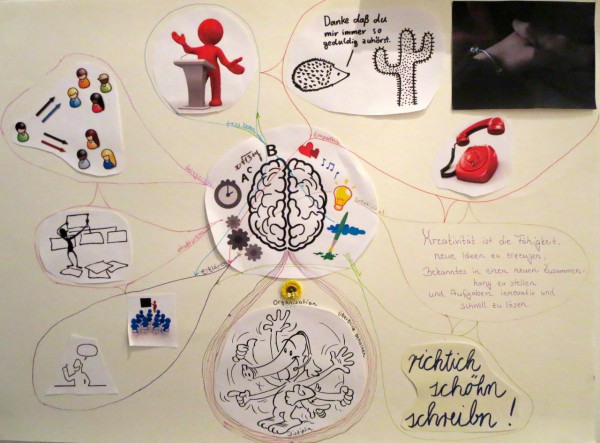 Danke daß du
mir immer so
geduldig zuhörst.
B
Empathie
Kreativität ist die Fähigkeit,
neue Ideen zu erzeugen,
Bekanntes in einen neuen Zusammen-
hang zu stellen
und Aufgaben innovativ und
schnell zu lösen.
Organisation
richtich
schöhn
schreibn!